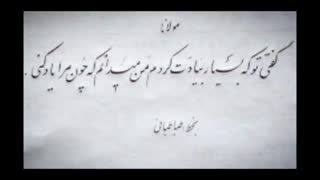 مولانا
گفتی تو که بسیار بیادت کردم من میدانم که چون مرا یاد کنی.
بخط: طباطبائی